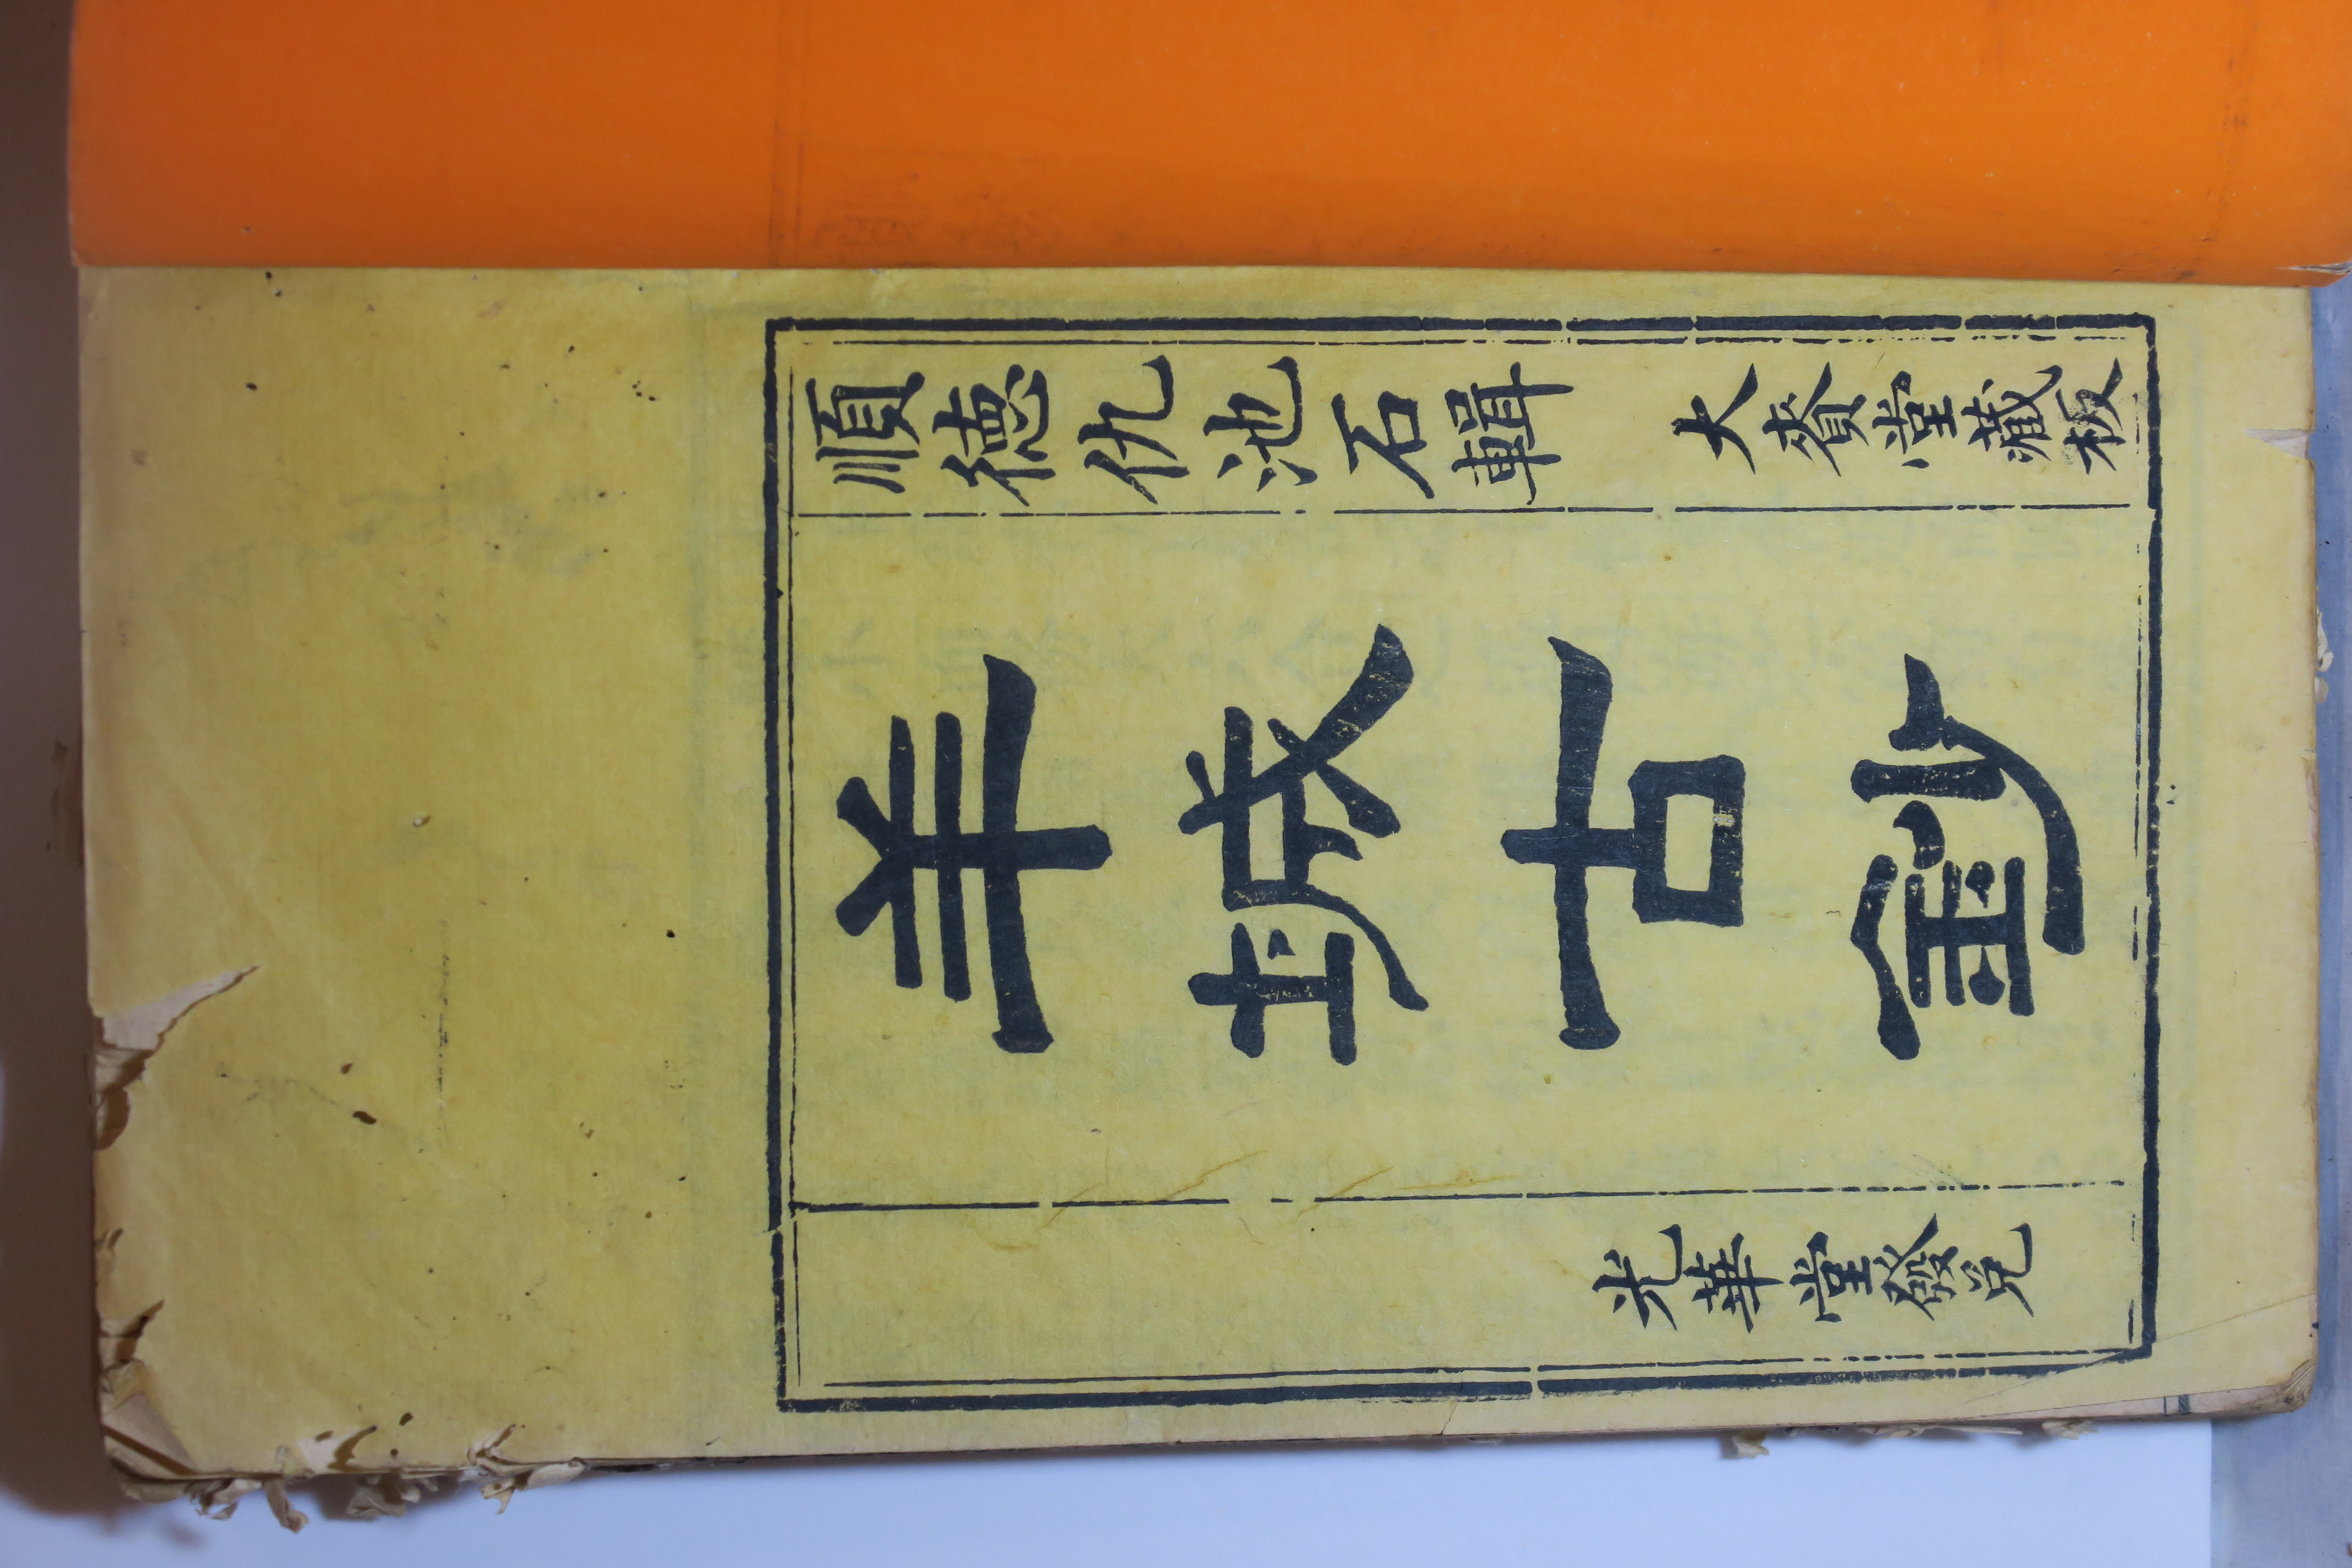 順德仇池石輯 大賚堂藏板
羊城古鈔
光華堂發兌